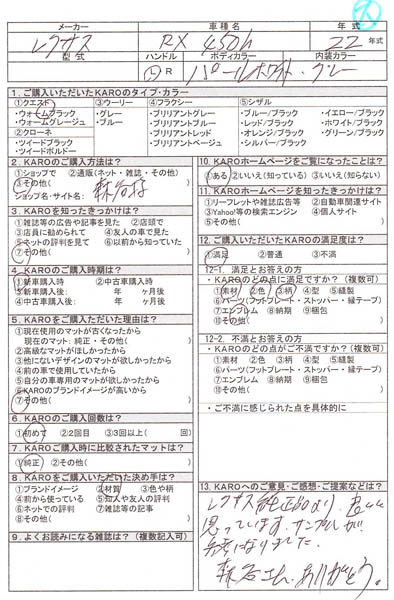 メーカー 車種名 年式
レクサス RX 450h 22 年式
型式 ハンドル ボディカラー 内装カラー
L R パールホワイト グレー
1. ご購入いただいたKAROのタイプ・カラー
①クエスト ③ウーリー ④フラクシー ⑤シザル
・ウォームブラック ・グレー ・ブリリアントグレー ・ブルー/ブラック ・イエロー/ブラック
・ウォームグレージュ ・ブルー ・ブリリアントブルー ・レッド/ブラック ・ホワイト/ブラック
②クローネ ・ブリリアントレッド ・オレンジ/ブラック ・グリーン/ブラック
・ツイードブラック ・ブリリアントベージュ ・シルバー/ブラック
・ツイードボルドー
2. KAROのご購入方法は?
①ショップで ②通販(ネット・雑誌・その他)
③その他( )
ショップ名・サイト名:
3. KAROを知ったきっかけは?
①雑誌等の広告や記事を見た ②店頭で
③店員に勧められて ④友人の車で見た
⑤ネットの評判を見て ⑥以前から知っていた
⑦その他( )
4. KAROのご購入時期は?
①新車購入時 ②中古車購入時
③新車購入後: 年 ヶ月後
④中古車購入後: 年 ヶ月後
5. KAROをご購入いただいた理由は?
①現在使用のマットが古くなったから
現在のマット: 純正・その他( )
②高級なマットがほしかったから
③他にないデザインのマットが欲しかったから
④前の車で使用していたから
⑤自分の車専用のマットが欲しかったから
⑥KAROのブランドイメージが高いから
⑦その他( )
6. KAROのご購入回数は?
①初めて ②2回目 ③3回以上( 回)
7. KAROご購入時に比較されたマットは?
①純正 ②その他( )
8. KAROをご購入いただいた決め手は?
①ブランドイメージ ②材質 ③色や柄
④前から使っている ⑤知人や友人の評判
⑥ネットでの評判 ⑦雑誌等の記事
⑧その他( )
9. よくお読みになる雑誌は?(複数記入可)
10. KAROホームページをご覧になったことは?
①ある ②いいえ(知っている) ③いいえ(知らない)
11. KAROホームページを知ったきっかけは?
①リーフレットや雑誌広告等 ②自動車関連サイト
③Yahoo!等の検索エンジン ④個人サイト
⑤その他( )
12. ご購入いただいたKAROの満足度は?
①満足 ②普通 ③不満
12-1. 満足とお答えの方
KAROのどの点に満足ですか?(複数可)
①素材 ②色 ③柄 ④型 ⑤縫製
⑥パーツ(フットプレート・ストッパー・縁テープ)
⑦エンブレム ⑧納期 ⑨梱包
⑩その他( )
12-2. 不満とお答えの方
KAROのどの点がご不満ですか?(複数可)
①素材 ②色 ③柄 ④型 ⑤縫製
⑥パーツ(フットプレート・ストッパー・縁テープ)
⑦エンブレム ⑧納期 ⑨梱包
⑩その他( )
・ご不満に感じられた点を具体的に
13. KAROへのご意見・ご感想・ご提案などは?
レクサス純正品より、良いと
思っています。サンプルが
参考になりました。
ありがとう。